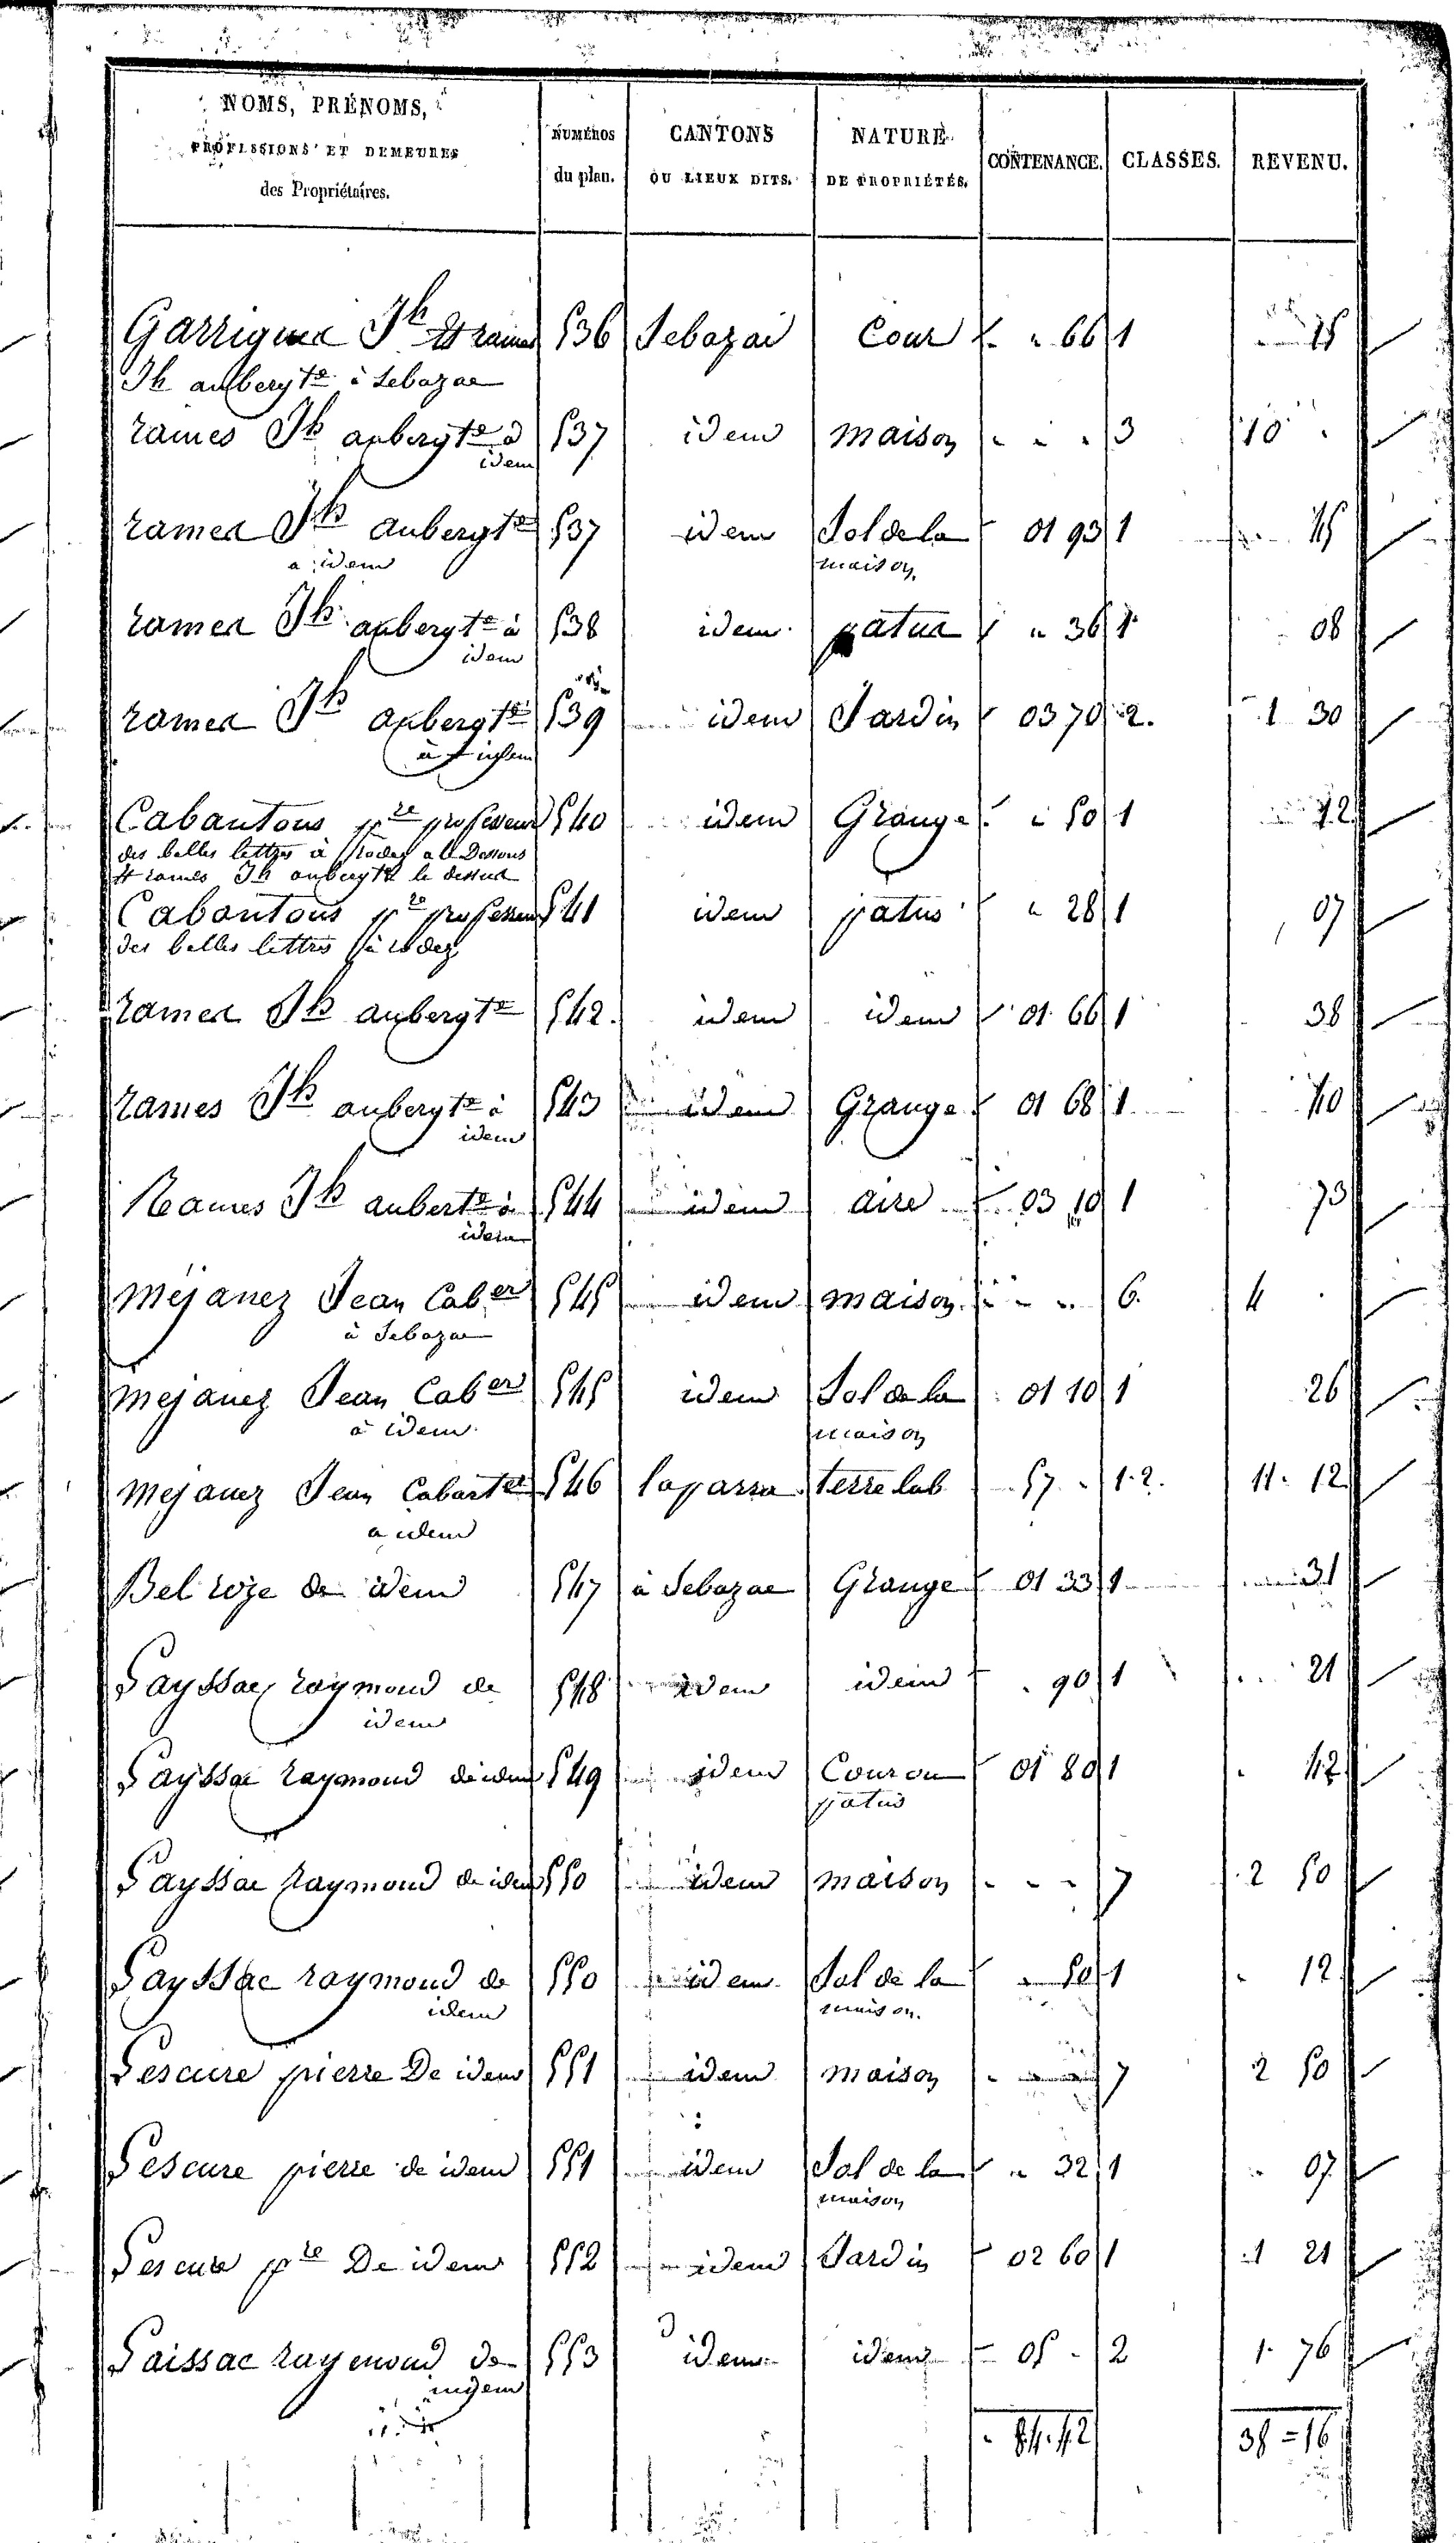 NOMS, PRÉNOMS, PROFESSIONS ET DEMEURES des Propriétaires. | NUMÉROS du plan. | CANTONS OU LIEUX DITS. | NATURE DE PROPRIÉTÉS. | CONTENANCE. | CLASSES. | REVENU.
Garrigues Jh et rames 536 Sebazac Cour " 66 1 15
Jh aubergte à Sebazac
rames Jh aubergte à 537 idem maison " " " 3 10 "
idem
rames Jh aubergte 537 idem Sol de la 01 93 1 45
a idem maison
rames Jh aubergte à 538 idem patus " 36 1 08
idem
rames Jh aubergte 539 idem Jardin 03 70 2. 1 30
à idem
Cabantous pre professeur 540 idem Grange " 50 1 12
des belles lettres à rodez a le Dessous
et rames Jh aubergte le dessus
Cabantous pre professeur 541 idem patus " 28 1 07
des belles lettres à rodez
rames Jh aubergte 542. idem idem 01 66 1 38
rames Jh aubergte à 543 idem Grange 01 68 1 40
idem
Rames Jh auberte à 544 idem aire 03 10 1 73
idem
méjanez Jean Caber 545 idem maison " " " 6. 4 "
à Sebazac
mejanez Jean Caber 545 idem Sol de la 01 10 1 26
à idem maison
mejanez Jean Cabart 546 laparra terre lab 57 " 1.2. 11. 12
a idem
Bel roze de idem 547 à Sebazac Grange 01 33 1 31
Layssac raymond de 548 idem idem " 90 1 21
idem
Layssac raymond de idem 549 idem Cour ou 01 80 1 42
patus
Layssac raymond de idem 550 idem maison " " " 7 2 50
Layssac raymond de 550 idem Sol de la " 50 1 12
idem maison.
Lescure pierre De idem 551 idem maison " 7 2 50
Lescure pierre de idem 551 idem Sol de la " 32 1 07
maison
Lescure pre De idem 552 idem Jardin 02 60 1 1 21
Laissac raymond de 553 idem idem 05 " 2 1. 76
84.42 38 = 16